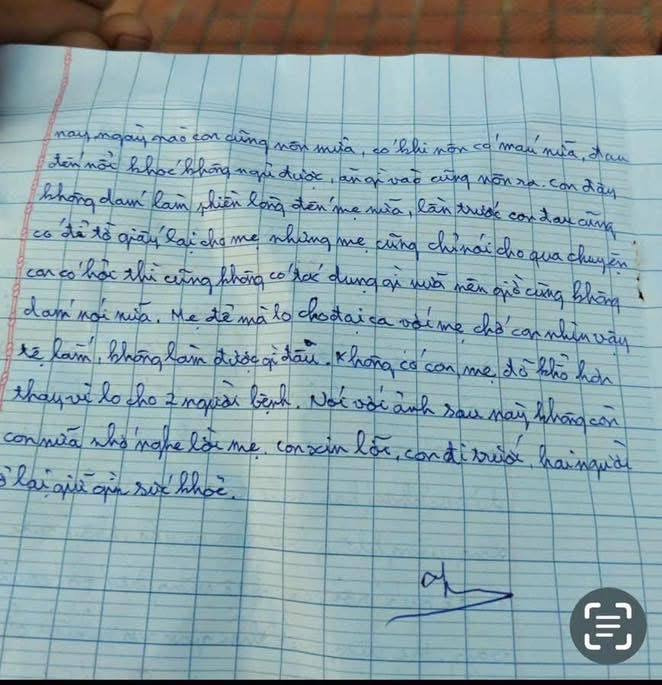 nay ngày nào con cũng nôn mửa, có khi nôn có máu nữa, đau
đến nỗi khóc không ngủ được, ăn gì vào cũng nôn ra. con đây
không dám làm phiền lòng đến mẹ nữa, lần trước con đau cũng
có để tờ giấy lại cho mẹ nhưng mẹ cũng chỉ nói cho qua chuyện
con có học thì cũng không có tác dụng gì nữa nên giờ cũng không
dám nói nữa. Mẹ để mà lo cho đại ca với mẹ, chứ con nhìn vậy
tệ lắm, không làm được gì đâu. Không có con, mẹ đỡ khổ hơn
thay vì lo cho 2 người bệnh. Nói với anh sau này không còn
con nữa nhớ nghe lời mẹ. con xin lỗi, con đi trước, hai người
ở lại giữ gìn sức khoẻ.